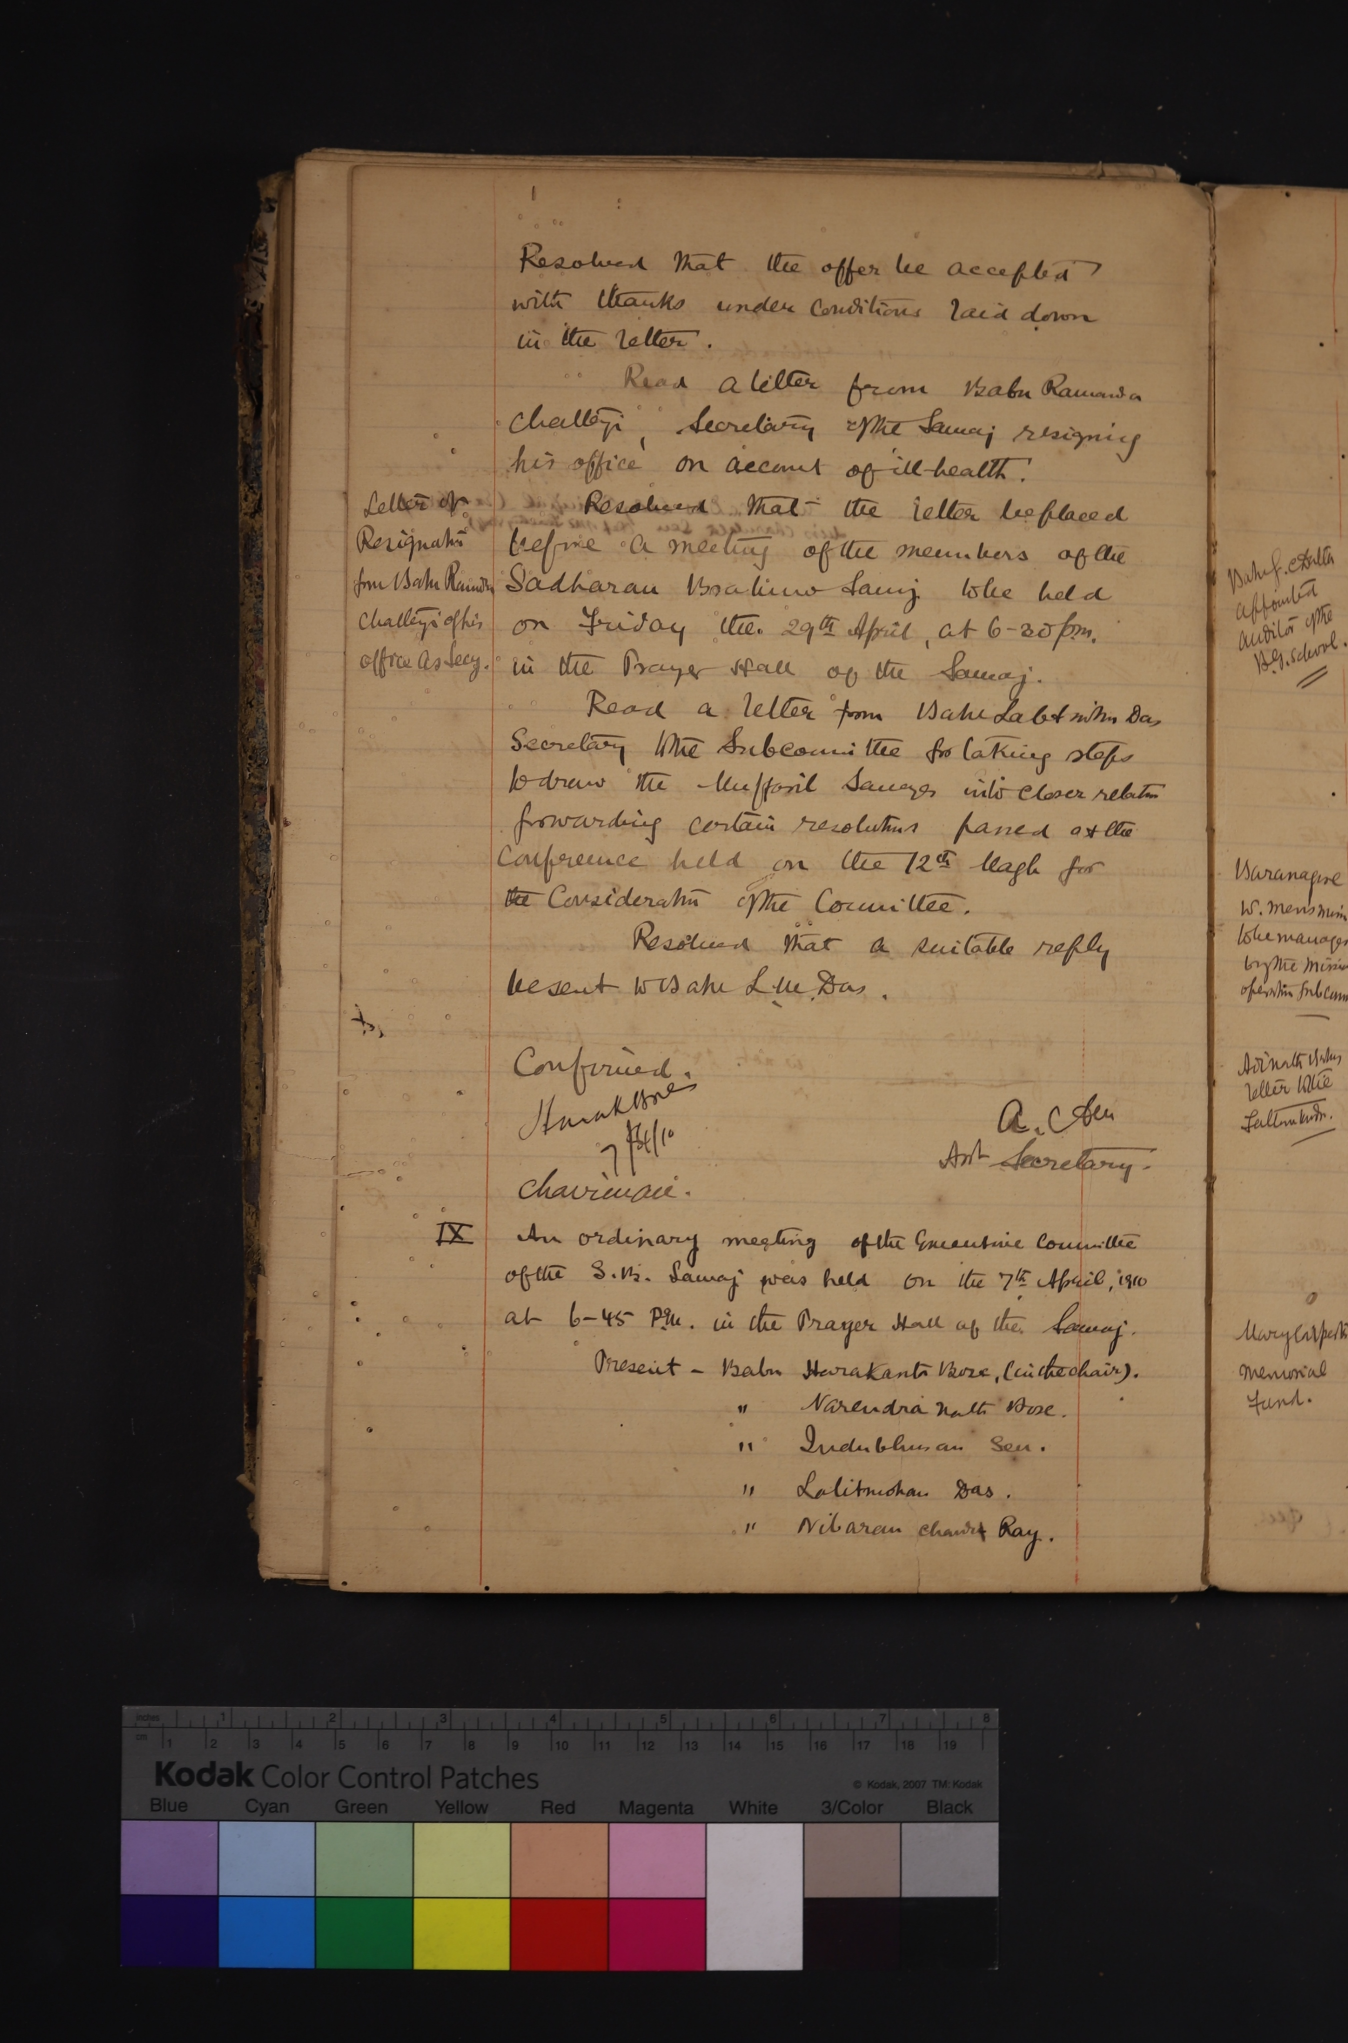 Resolved that the offer be accepted
with thanks under conditions laid down
in the letter.
Read a letter from Babu Ramanda
Chatterji, Secretary of the Samaj resigning
his office on account of ill-health.
Letter of
Resignatn
from Babu Ramda
Chatterji of his
office as Secy.
Resolved that the letter be placed
before a meeting of the members of the
Sadharan Brahmo Samj to be held
on Friday the 29th April, at 6-30 p.m.
in the Prayer Hall of the Samaj.
Read a letter from Babu Lalit mohn Das
Secretary to the Subcommittee for taking steps
to draw the Muffasil Samajes into closer relatn
forwarding certain resolutns passed at the
Conference held on the 12th Magh for
the Consideratn of the Committee.
Resolved that a suitable reply
be sent to Babu L.M. Das.
Confirmed.
Harak Bose
7/4/10
Chairman.
A. C. Sen
Asst Secretary.
IX
An ordinary meeting of the Executive Committee
of the S. B. Samaj was held on the 7th April, 1910
at 6-45 P.M. in the Prayer Hall of the Samaj.
Present - Babu Harakanta Bose, (in the chair).
" Narendra Nath Bose.
" Indubhusan Sen.
" Lalitmohan Das.
" Nibaran Chandra Ray.
appointed
auditor of the
B.G. School.
Baranagore
W. mens
to be manage
by the Missi
operatn Subcom
Adinath
letter to the
Mary Carpent
Memorial
Fund.
inches 1 2 3 4 5 6 7 8
cm 1 2 3 4 5 6 7 8 9 10 11 12 13 14 15 16 17 18 19
Kodak Color Control Patches
© Kodak, 2007 TM: Kodak
Blue Cyan Green Yellow Red Magenta White 3/Color Black